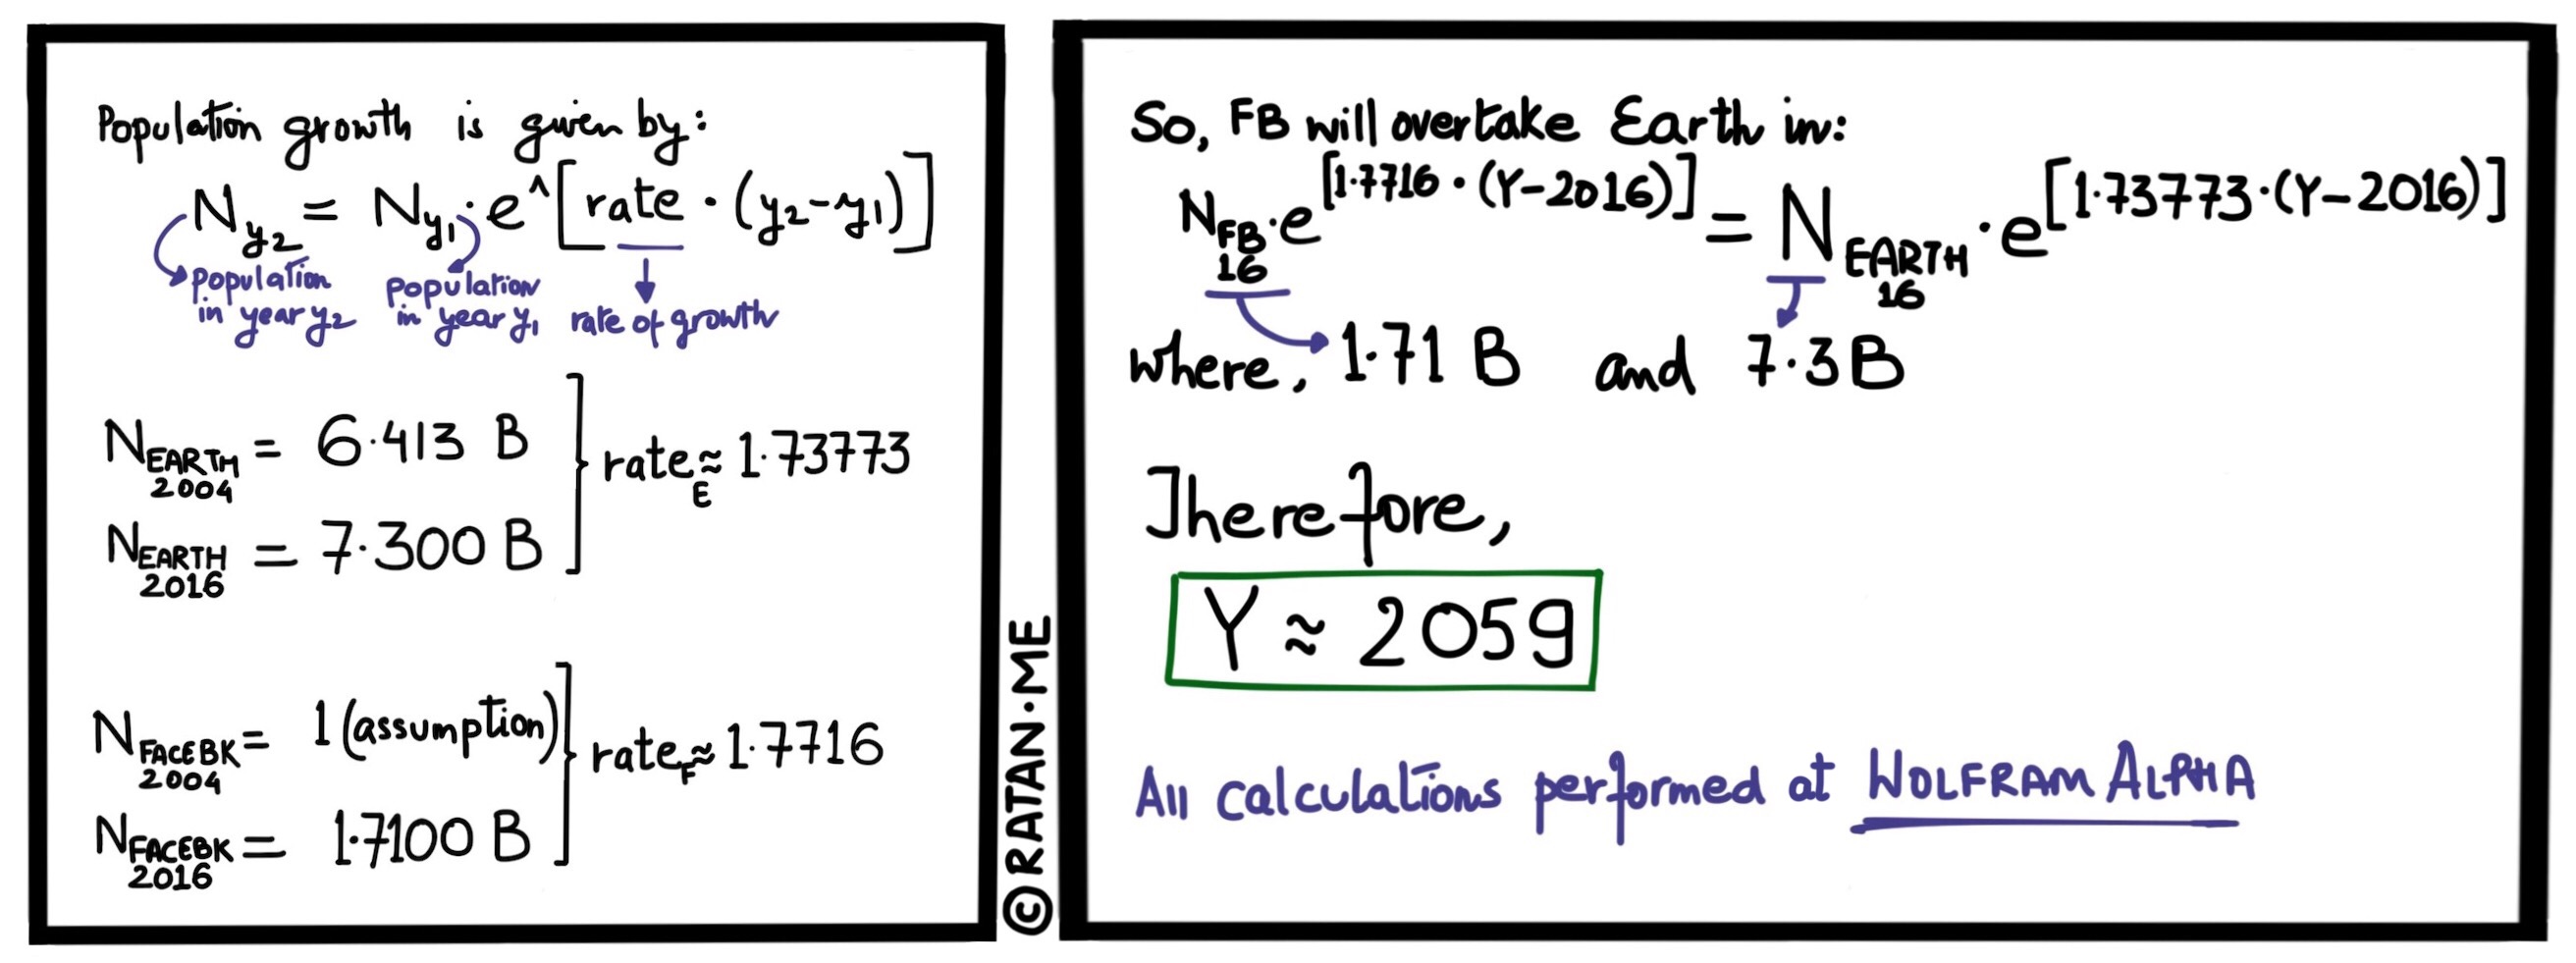 Population growth is given by:
N y2 = N y1 · e^[rate · (y2-y1)]
population in year y2
population in year y1
rate of growth
N EARTH 2004 = 6.413 B
rate E ≈ 1.73773
N EARTH 2016 = 7.300 B
N FACEBK 2004 = 1 (assumption)
rate F ≈ 1.7716
N FACEBK 2016 = 1.7100 B
© RATAN.ME
So, FB will overtake Earth in:
N FB 16 · e [1.7716 · (Y-2016)] = N EARTH 16 · e [1.73773 · (Y-2016)]
where, 1.71 B and 7.3 B
Therefore,
Y ≈ 2059
All calculations performed at WOLFRAM ALPHA